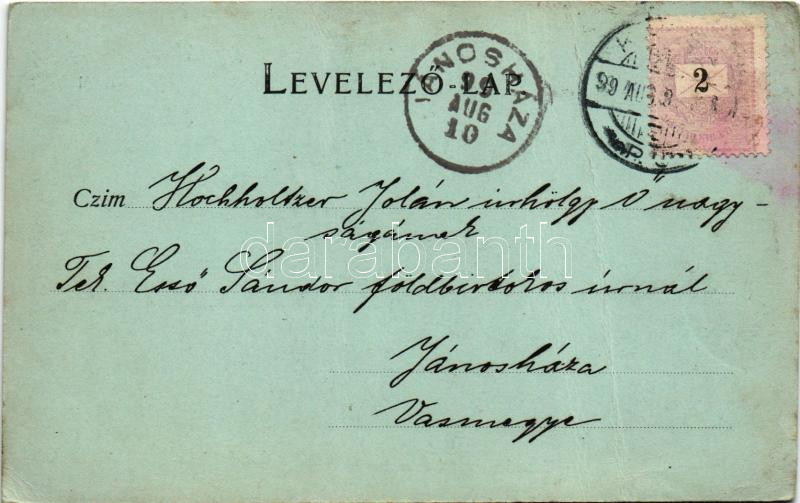 LEVELEZŐ-LAP
JÁNOSHÁZA
99
AUG
10
99 AUG. 9
2
Czim Hochholtzer Jolán úrhölgy Ő nagy-
ságának
Tek. Esső Sándor földbirtokos úrnál
Jánosháza
Vasmegye
darabanth